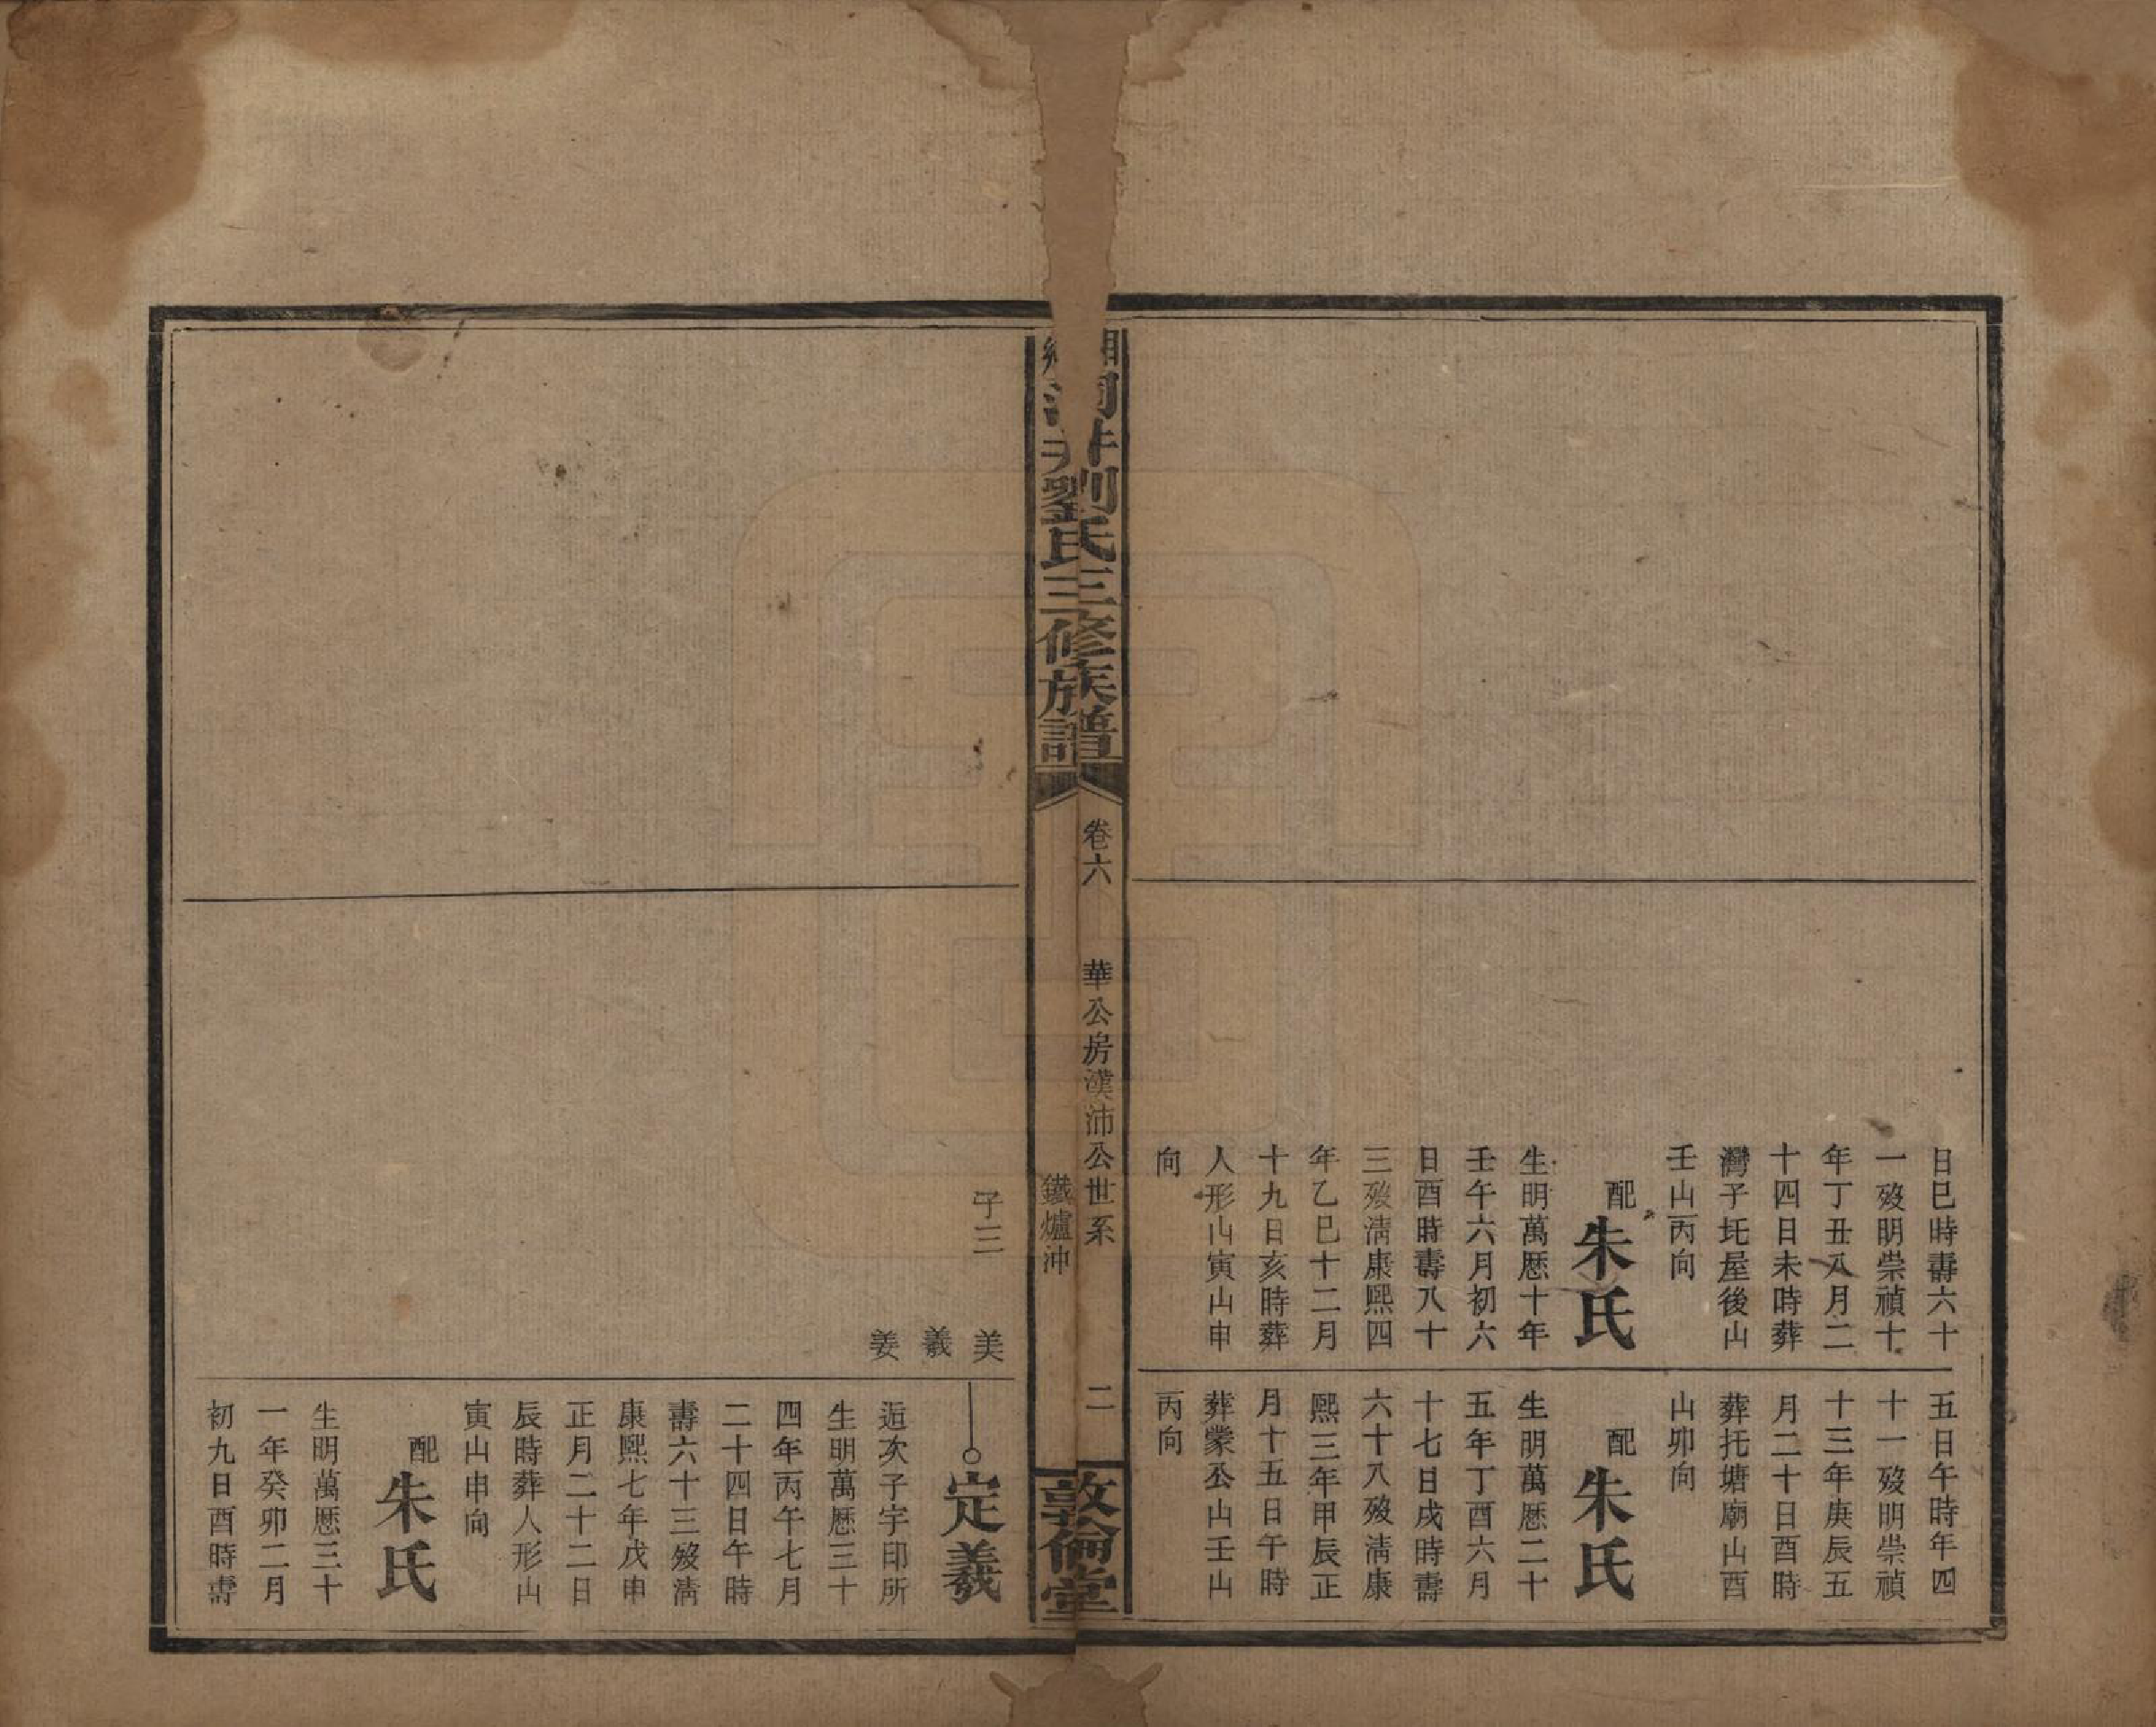 日巳時壽六十
一歿明崇禎十
年丁丑八月二
十四日未時葬
灣子圫屋後山
壬山丙向
配朱氏
生明萬歷十年
壬午六月初六
日酉時壽八十
三歿淸康熙四
年乙巳十二月
十九日亥時葬
人形山寅山申
向
五日午時年四
十一歿明崇禎
十三年庚辰五
月二十日酉時
葬托塘廟山酉
山卯向
配朱氏
生明萬歷二十
五年丁酉六月
十七日戌時壽
六十八歿淸康
熙三年甲辰正
月十五日午時
葬蒙公山壬山
丙向
井劉氏三修族譜
卷六
華公房漢沛公世系
鐵爐沖
二
敦倫堂
子三
美
義
姜
定義
逅次子字印所
生明萬歷三十
四年丙午七月
二十四日午時
壽六十三歿淸
康熙七年戊申
正月二十二日
辰時葬人形山
寅山申向
配朱氏
生明萬歷三十
一年癸卯二月
初九日酉時壽